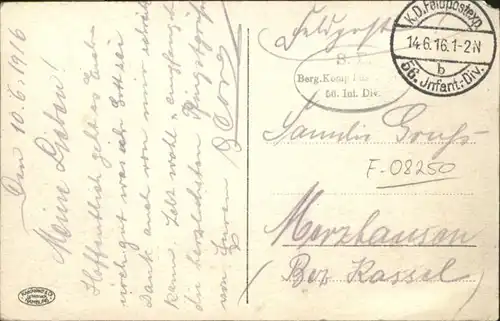 Den 10.6.1916
Meine Lieben!
Hoffentlich geht es Euch
noch gut was ich Gott sei
Dank auch von mir schreiben
kann. Lebt wohl u. empfangt
die herzlichsten Pfingstgrüße
von Euren
Feldpost
K.D. Feldpostexp.
14.6.16. 1-2N
b
56. Infant.-Div.
Berg. Komp.
56. Inf. Div.
Familie
F-08250
Merzhausen
(Bez. Kassel)